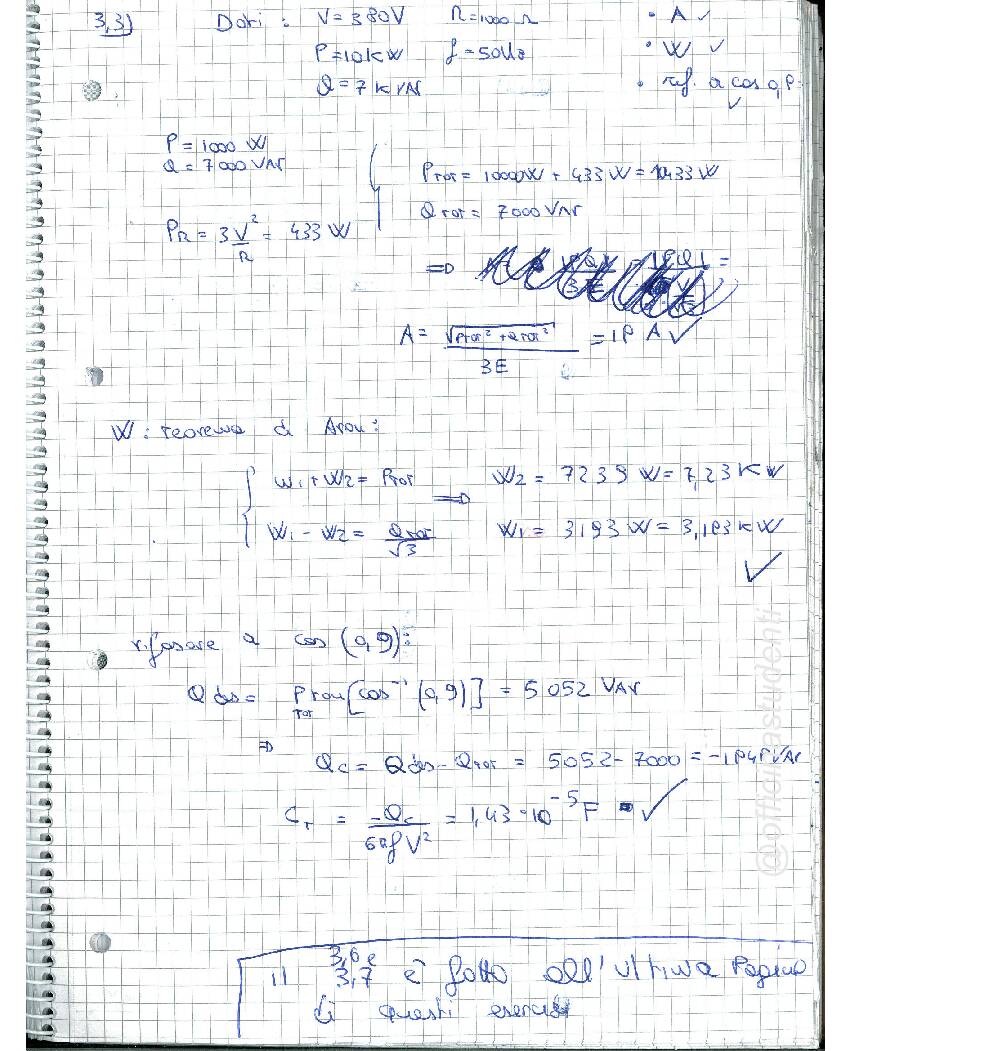 3,3) Dati : V = 380V R = 1000 Ω • A ✓
P = 10 kW f = 50Hz • W ✓
Q = 7 kVAr • rif. a cos 0,9 ✓
P = 1000 W
Q = 7000 VAr
PR = 3 V²/R = 433 W
PTOT = 10000W + 433 W = 10433 W
QTOT = 7000 VAr
=>
A = √(PTOT² + QTOT²) / 3E = 19 A ✓
W : teorema di Aron :
W1 + W2 = PTOT => W2 = 7239 W = 7,23 kW
W1 - W2 = QTOT/√3 W1 = 3193 W = 3,193 kW
✓
rifasare a cos (0,9) :
Qdes = PTOT tan [cos⁻¹ (0,9)] = 5052 VAr
=> QC = Qdes - QTOT = 5052 - 7000 = -1948 VAr
CT = -QC / 6πf V² = 1,43 · 10⁻⁵ F ✓
il 3,6 e 3,7 è fatto all'ultima pagina
di questi esercizi
@officialastudenti